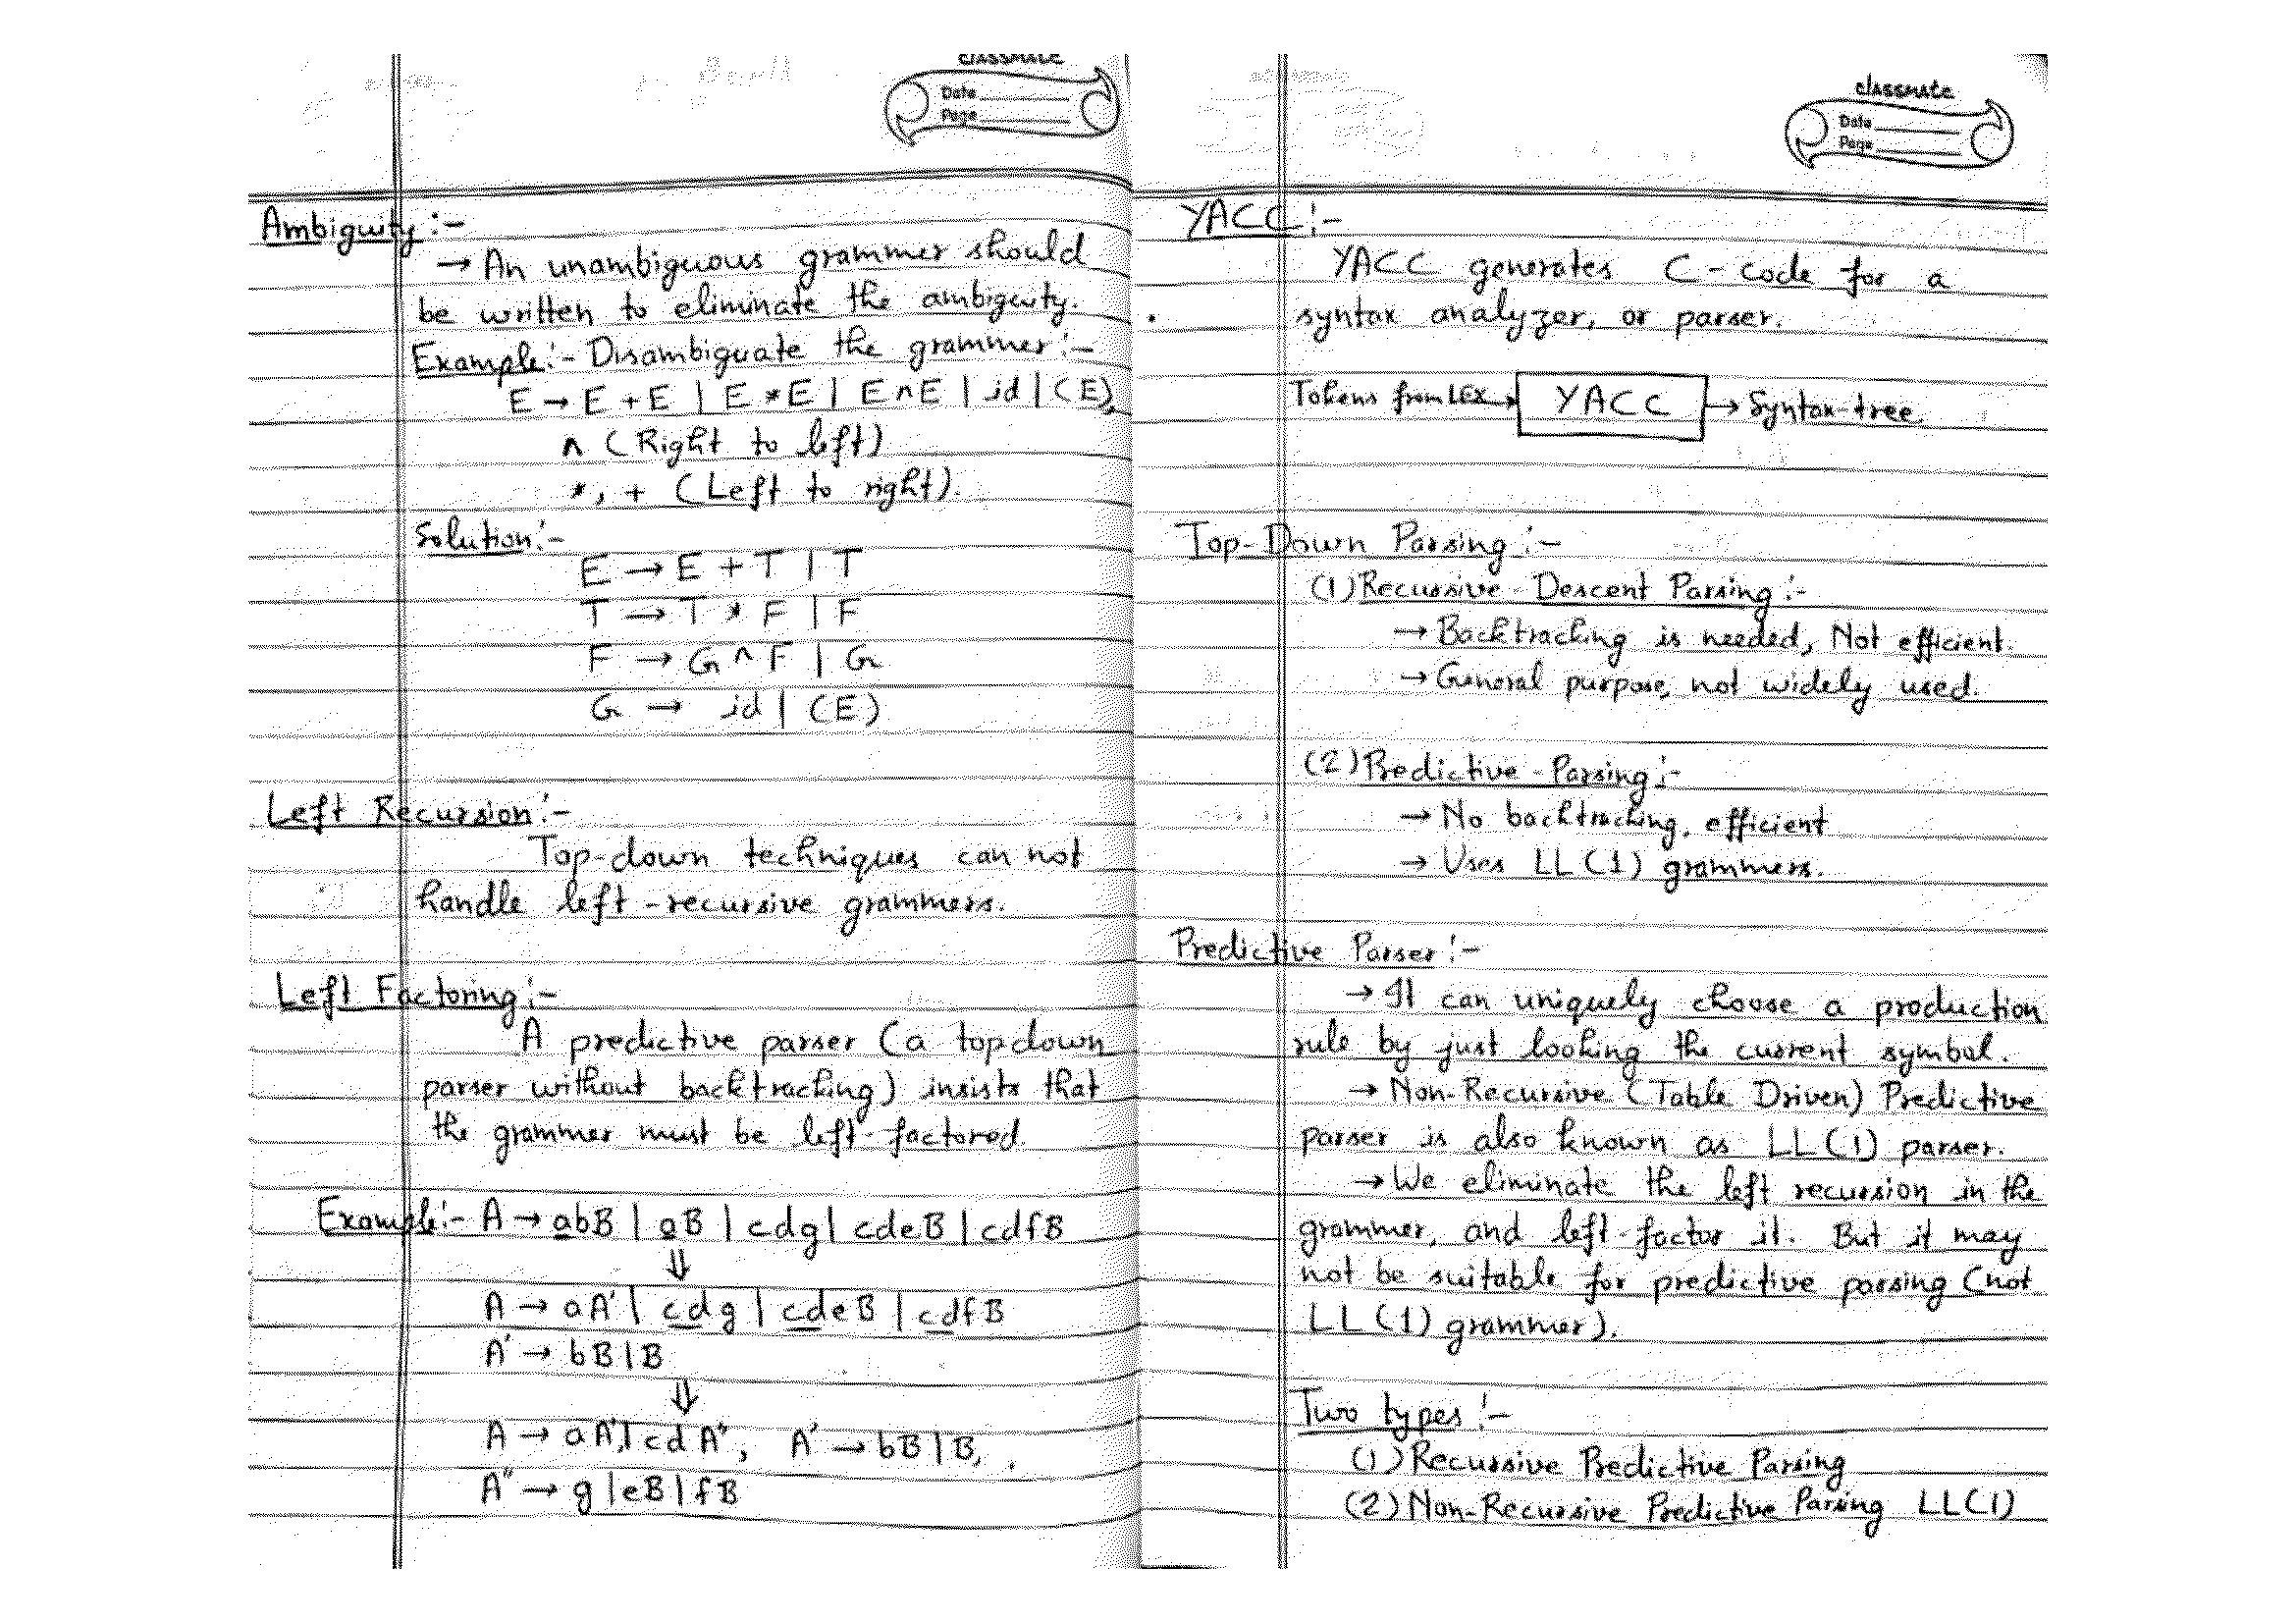 classmate
Date
Page
Ambiguity :-
→ An unambiguous grammer should
be written to eliminate the ambiguity.
Example:- Disambiguate the grammer:-
E → E + E | E * E | E ^ E | id | (E)
^ (Right to left)
*, + (Left to right).
Solution:-
E → E + T | T
T → T * F | F
F → G ^ F | G
G → id | (E)
Left Recursion:-
Top-down techniques can not
handle left-recursive grammers.
Left Factoring:-
A predictive parser (a top down
parser without backtracking) insists that
the grammer must be left-factored.
Example:- A → abB | aB | cdg | cdeB | cdfB
⇓
A → aA' | cdg | cdeB | cdfB
A' → bB | B
⇓
A → aA' | cdA'', A' → bB | B,
A'' → g | eB | fB
classmate
Date
Page
YACC:-
YACC generates C-code for a
syntax analyzer, or parser.
Tokens from LEX → YACC → Syntax-tree
Top-Down Parsing:-
(1) Recursive-Descent Parsing:-
→ Backtracking is needed, Not efficient.
→ General purpose, not widely used.
(2) Predictive-Parsing:-
→ No backtracking, efficient
→ Uses LL(1) grammers.
Predictive Parser:-
→ It can uniquely choose a production
rule by just looking the current symbol.
→ Non-Recursive (Table Driven) Predictive
parser is also known as LL(1) parser.
→ We eliminate the left recursion in the
grammer, and left-factor it. But it may
not be suitable for predictive parsing (not
LL(1) grammer).
Two types:-
(1) Recursive Predictive Parsing
(2) Non-Recursive Predictive Parsing LL(1)